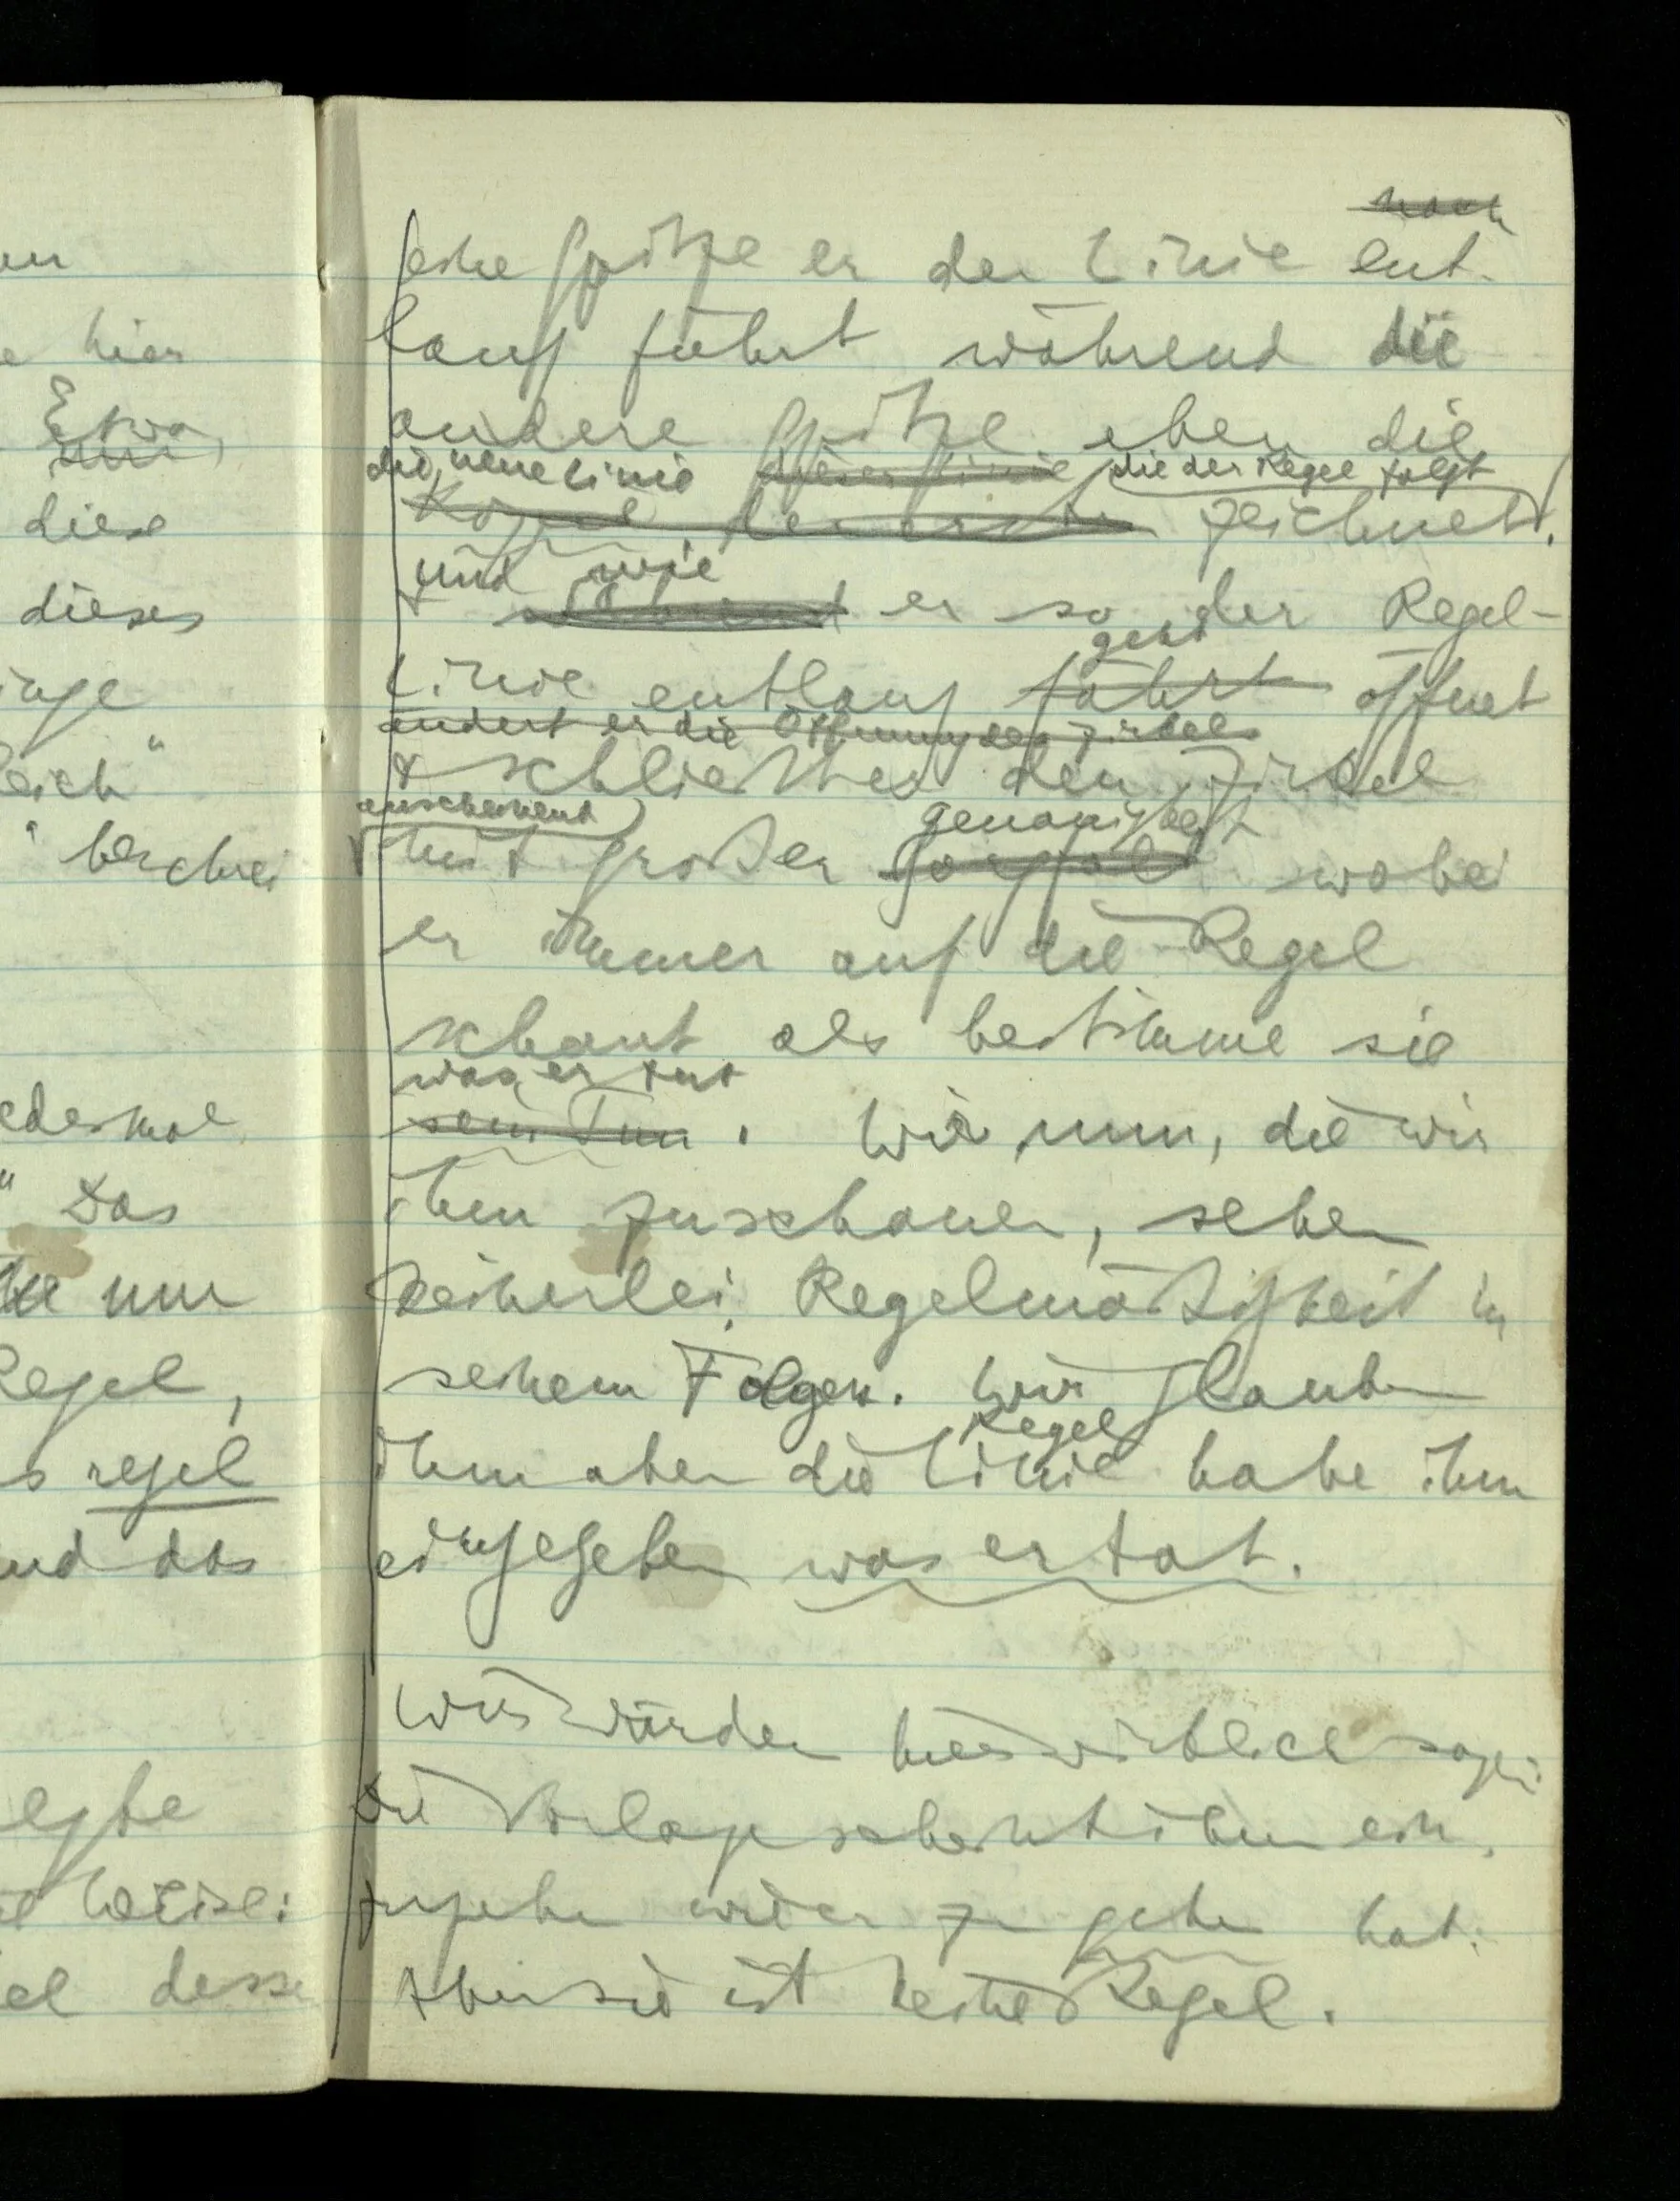 un
noch
eine Spitze er der Linie ent-
e hier
lang führt während die
Etwa,
andere Spitze eben die
die neue Linie dieser Linie die der Regel folgt
diese
zeichnet.
und wie
dieses
er so der Regel-
geht
Linie entlang fährt öffnet
ändert er die Öffnung des Zirkels
leich"
& schließt er den Zirkel
anscheinend Genauigkeit
berschrei
mit großer Sorgfalt wobei
er immer auf die Regel
schaut als bestimme sie
was er tut
edesmal
sein Tun. Wir nun, die wir
" Das
ihm zuschauen, sehen
nur
keinerlei Regelmäßigkeit in
Regel,
seinem Folgen. Wir glauben
Regel
s regel
ihm aber die Linie habe ihm
und das
eingegeben was er tat.
Wir würden hier wirklich sagen:
Die Vorlage scheint ihm ein-
Weise:
zugeben wie er zu gehen hat.
el desse
Aber sie ist keine Regel.